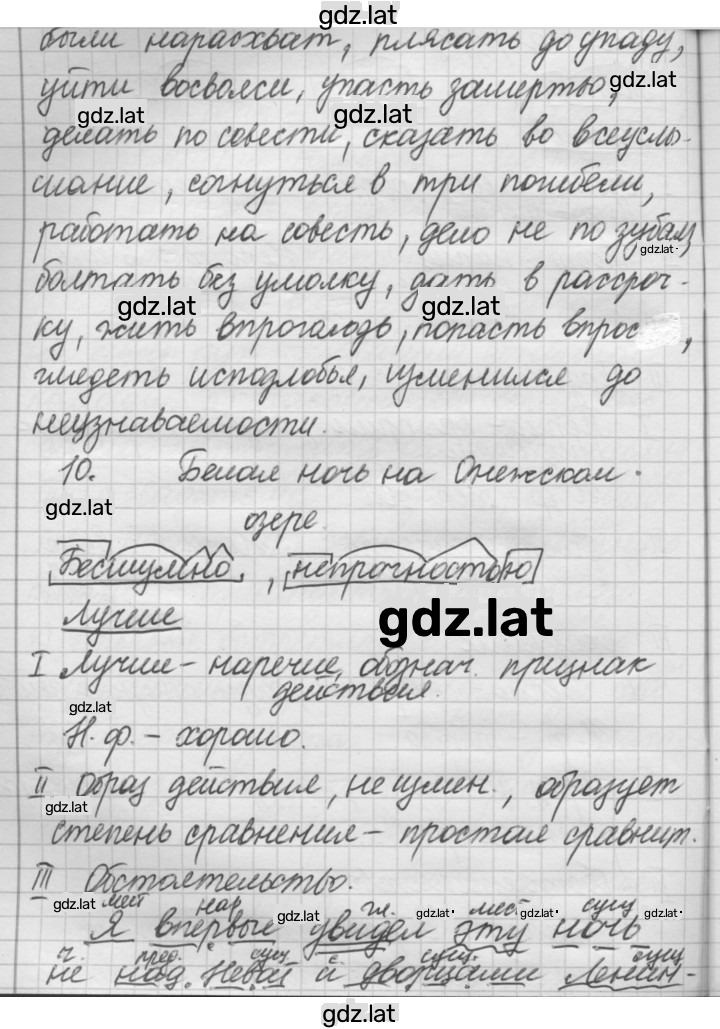 gdz.lat
были нарасхват, плясать до упаду,
gdz.lat
уйти восвояси, упасть замертво,
gdz.lat gdz.lat
делать по совести, сказать во всеуслы-
шание, согнуться в три погибели,
работать на совесть, дело не по зубам,
gdz.lat
болтать без умолку, дать в рассроч-
gdz.lat gdz.lat
ку, жить впроголодь, попасть впрос
глядеть исподлобья, изменился до
неузнаваемости.
10. Белая ночь на Онежском
gdz.lat
озере.
Бесшумно, непрочностью
Лучше
gdz.lat
I Лучше - наречие, обознач. признак
действия.
gdz.lat
Н. ф. - хорошо.
II Образ действия, неизмен., образует
gdz.lat
степень сравнения - простая сравнит.
III Обстоятельство.
gdz.lat мест нар гл. мест сущ
gdz.lat gdz.lat gdz.lat
Я впервые увидел эту ночь
ч. пред. сущ сущ. сущ
не над Невой и дворцами Ленин-
gdz.lat